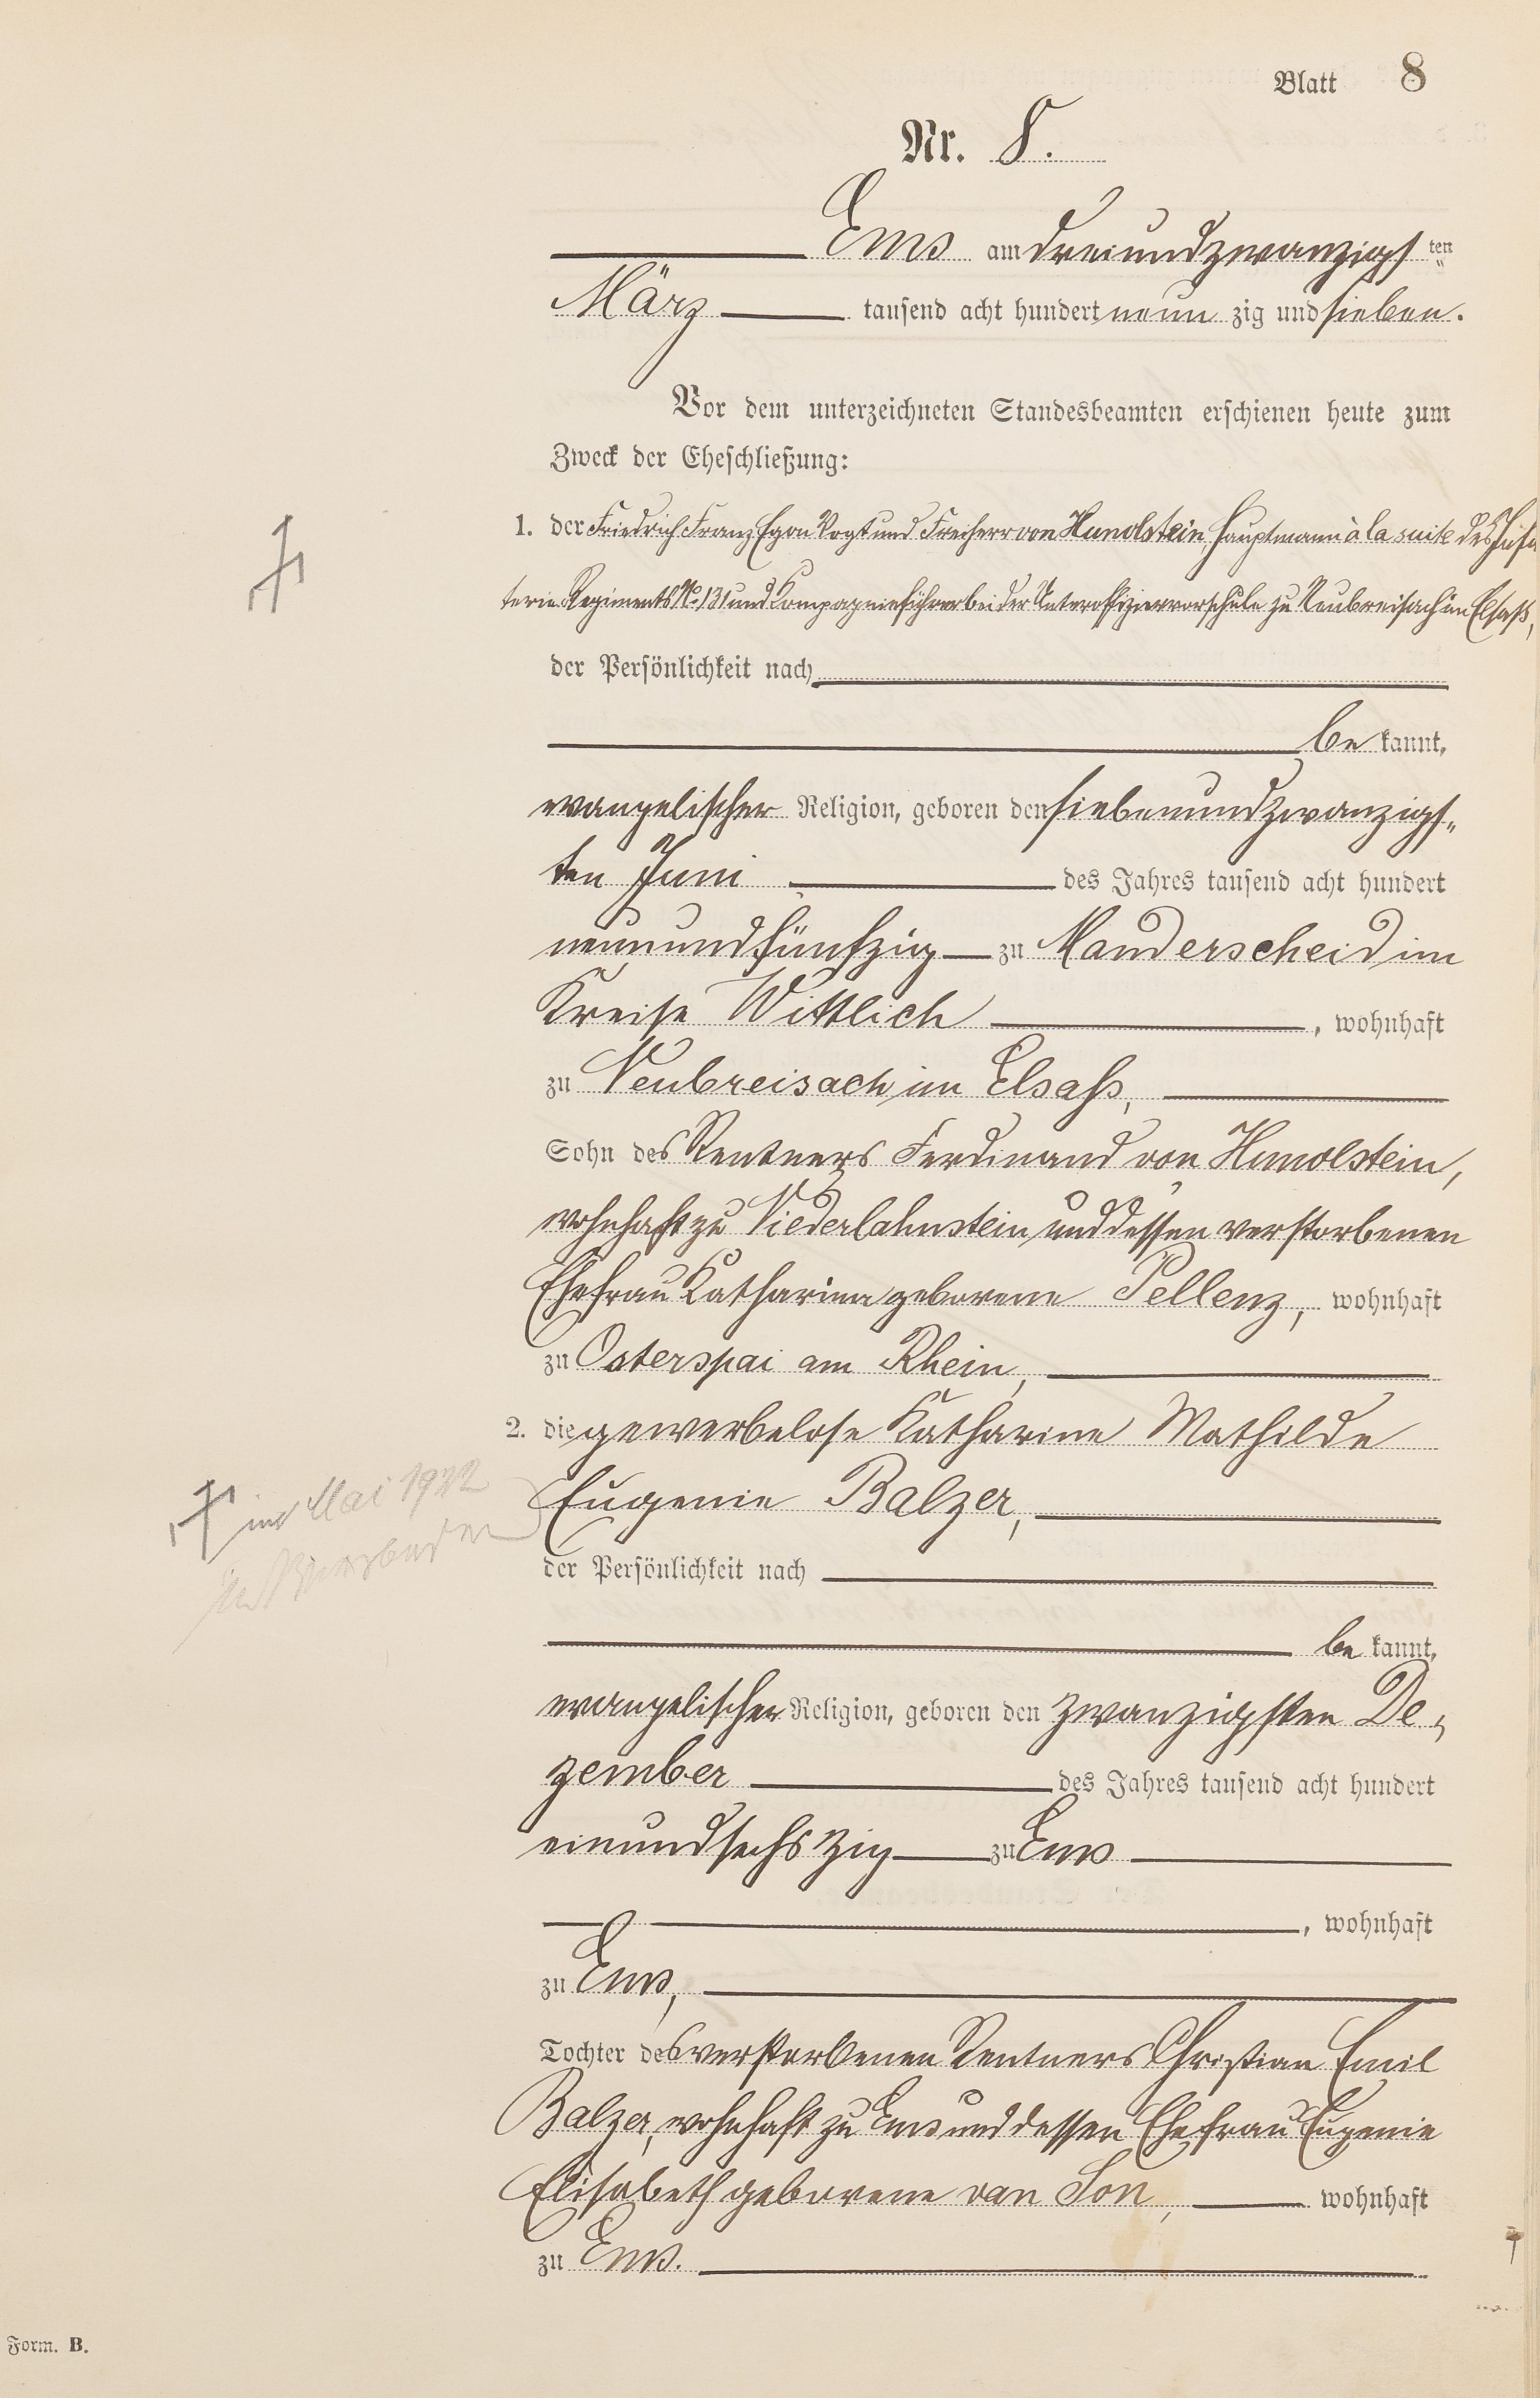 Blatt 8
Nr. 8.
Ems am dreiundzwanzigsten
März tausend acht hundert neunzig und sieben.
Vor dem unterzeichneten Standesbeamten erschienen heute zum
Zweck der Eheschließung:
1. der Friedrich Franz Egon Vogt und Freiherr von Hunolstein, Hauptmann à la suite des Infan
terie Regiments No 131 und Kompagnieführer bei der Unteroffiziervorschule zu Neubreisach im Elsaß,
der Persönlichkeit nach
bekannt,
evangelischer Religion, geboren den siebenundzwanzigs„
ten Juni des Jahres tausend acht hundert
neunundfünfzig zu Manderscheid im
Kreise Wittlich, wohnhaft
zu Neubreisach im Elsaß,
Sohn des Rentners Ferdinand von Hunolstein,
wohnhaft zu Niederlahnstein und dessen verstorbenen
Ehefrau Katharina geborene Pellenz, wohnhaft
zu Osterspai am Rhein,
2. die gewerbelose Katharine Mathilde
† im Mai 1922
Eugenie Balzer,
der Persönlichkeit nach
bekannt,
evangelischer Religion, geboren den zwanzigsten De„
zember des Jahres tausend acht hundert
einundsechszig zu Ems
, wohnhaft
zu Ems,
Tochter des verstorbenen Rentners Christian Emil
Balzer, wohnhaft zu Ems und dessen Ehefrau Eugenie
Elisabeth geborene van Son, wohnhaft
zu Ems.
Form. B.